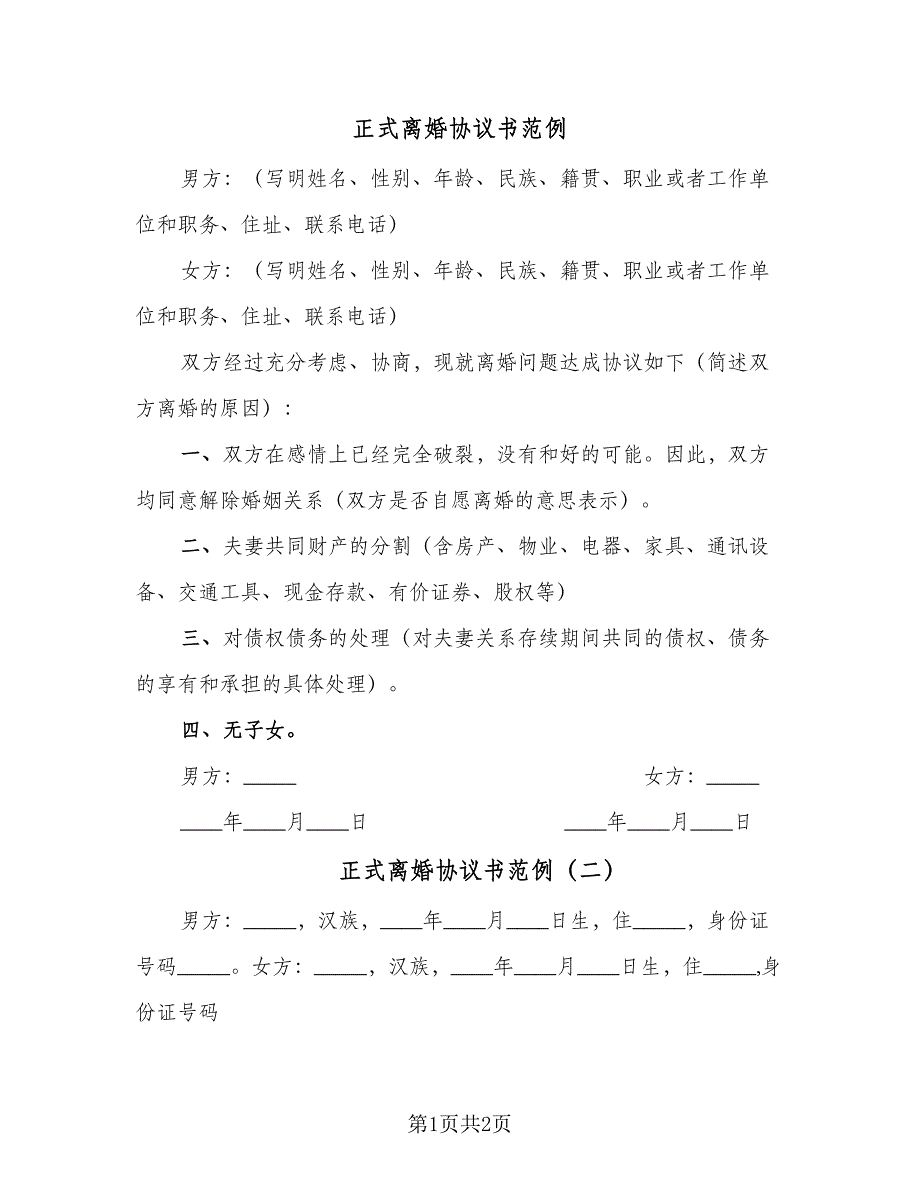 正式离婚协议书范例
男方：（写明姓名、性别、年龄、民族、籍贯、职业或者工作单
位和职务、住址、联系电话）
女方：（写明姓名、性别、年龄、民族、籍贯、职业或者工作单
位和职务、住址、联系电话）
双方经过充分考虑、协商，现就离婚问题达成协议如下（简述双
方离婚的原因）：
一、双方在感情上已经完全破裂，没有和好的可能。因此，双方
均同意解除婚姻关系（双方是否自愿离婚的意思表示）。
二、夫妻共同财产的分割（含房产、物业、电器、家具、通讯设
备、交通工具、现金存款、有价证券、股权等）
三、对债权债务的处理（对夫妻关系存续期间共同的债权、债务
的享有和承担的具体处理）。
四、无子女。
男方：_____ 女方：_____
____年____月____日 ____年____月____日
正式离婚协议书范例（二）
男方：_____，汉族，____年____月____日生，住_____，身份证
号码_____。女方：_____，汉族，____年____月____日生，住_____,身
份证号码
第1页共2页